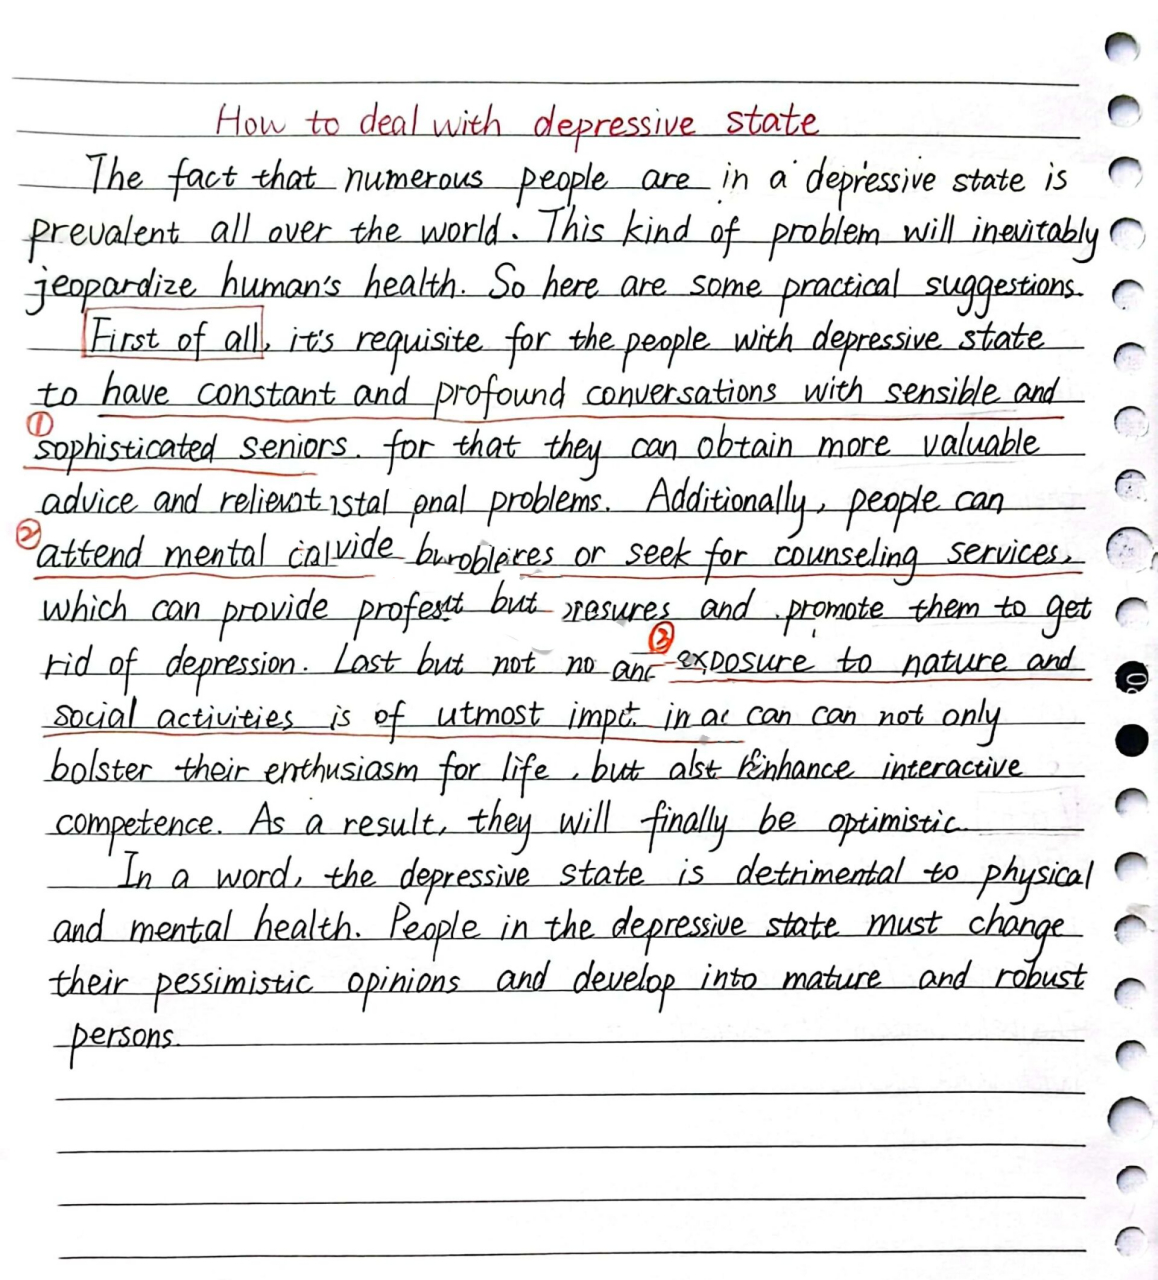 How to deal with depressive state
The fact that numerous people are in a depressive state is
prevalent all over the world. This kind of problem will inevitably
jeopardize human's health. So here are some practical suggestions.
First of all, it's requisite for the people with depressive state
to have constant and profound conversations with sensible and
①
sophisticated seniors. for that they can obtain more valuable
advice and problems. Additionally, people can
②
attend mental or seek for counseling services,
which can provide but and promote them to get
rid of depression. Last but not
③
exposure to nature and
social activities is of utmost in can can not only
bolster their enthusiasm for life, but enhance interactive
competence. As a result, they will finally be optimistic.
In a word, the depressive state is detrimental to physical
and mental health. People in the depressive state must change
their pessimistic opinions and develop into mature and robust
persons.